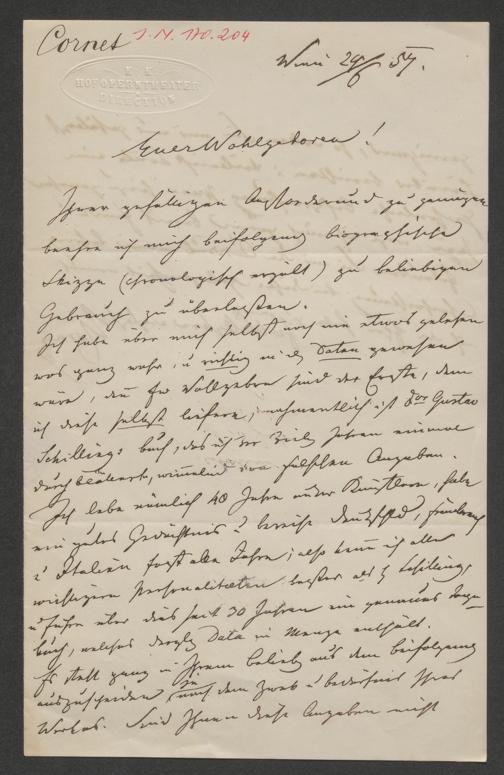 Cornet J. N. No. 204
K. K.
HOFOPERNTHEATER
DIRECTION
Wien 29/6 57.
Euer Wohlgeboren!
Ihrer gefälligen Aufforderung zu genügen
beehre ich mich beifolgend biographische
Skizze (chronologisch erzält) zu beliebigem
Gebrauch zu überlassen.
Ich habe über mich selbst noch nie etwas gelesen
was ganz wahr, u richtig in d Daten gewesen
wäre, den Ew Wollgeboren sind der Erste, dem
ich diese selbst liefere; nahmentlich ist Dor Gustav
Schillings buch, das ich vor Jahren einmal
durchblätterte, wimmelnd von falschen Angaben.
Ich lebe nämlich 40 Jahre unter Künstlern, habe
ein gutes Gedächtnis u bereise Deutschld, Frankreich
u Italien fast alle Jahre; also kenn ich alle
wichtigern Personalitäten besser als H Schilling,
u führe über dies seit 30 Jahren ein genaues Tage-
buch, welches dergl Data in Menge enthält.
Es steht ganz in Ihrem Belieb aus dem beifolgend
auszuscheiden nach dem Zweck u bedürfnis Ihres
Werkes. Sind Ihnen diese Angaben nicht